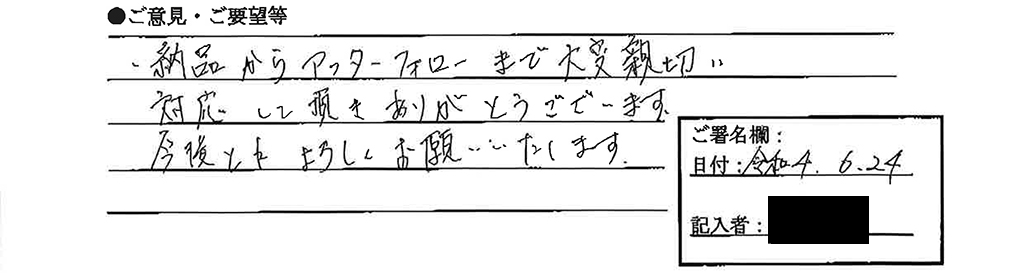 ●ご意見・ご要望等
・納品からアフターフォローまで大変親切に
対応して頂きありがとうございます。
今後ともよろしくお願いいたします。
ご署名欄:
日付:令和4.6.24
記入者: